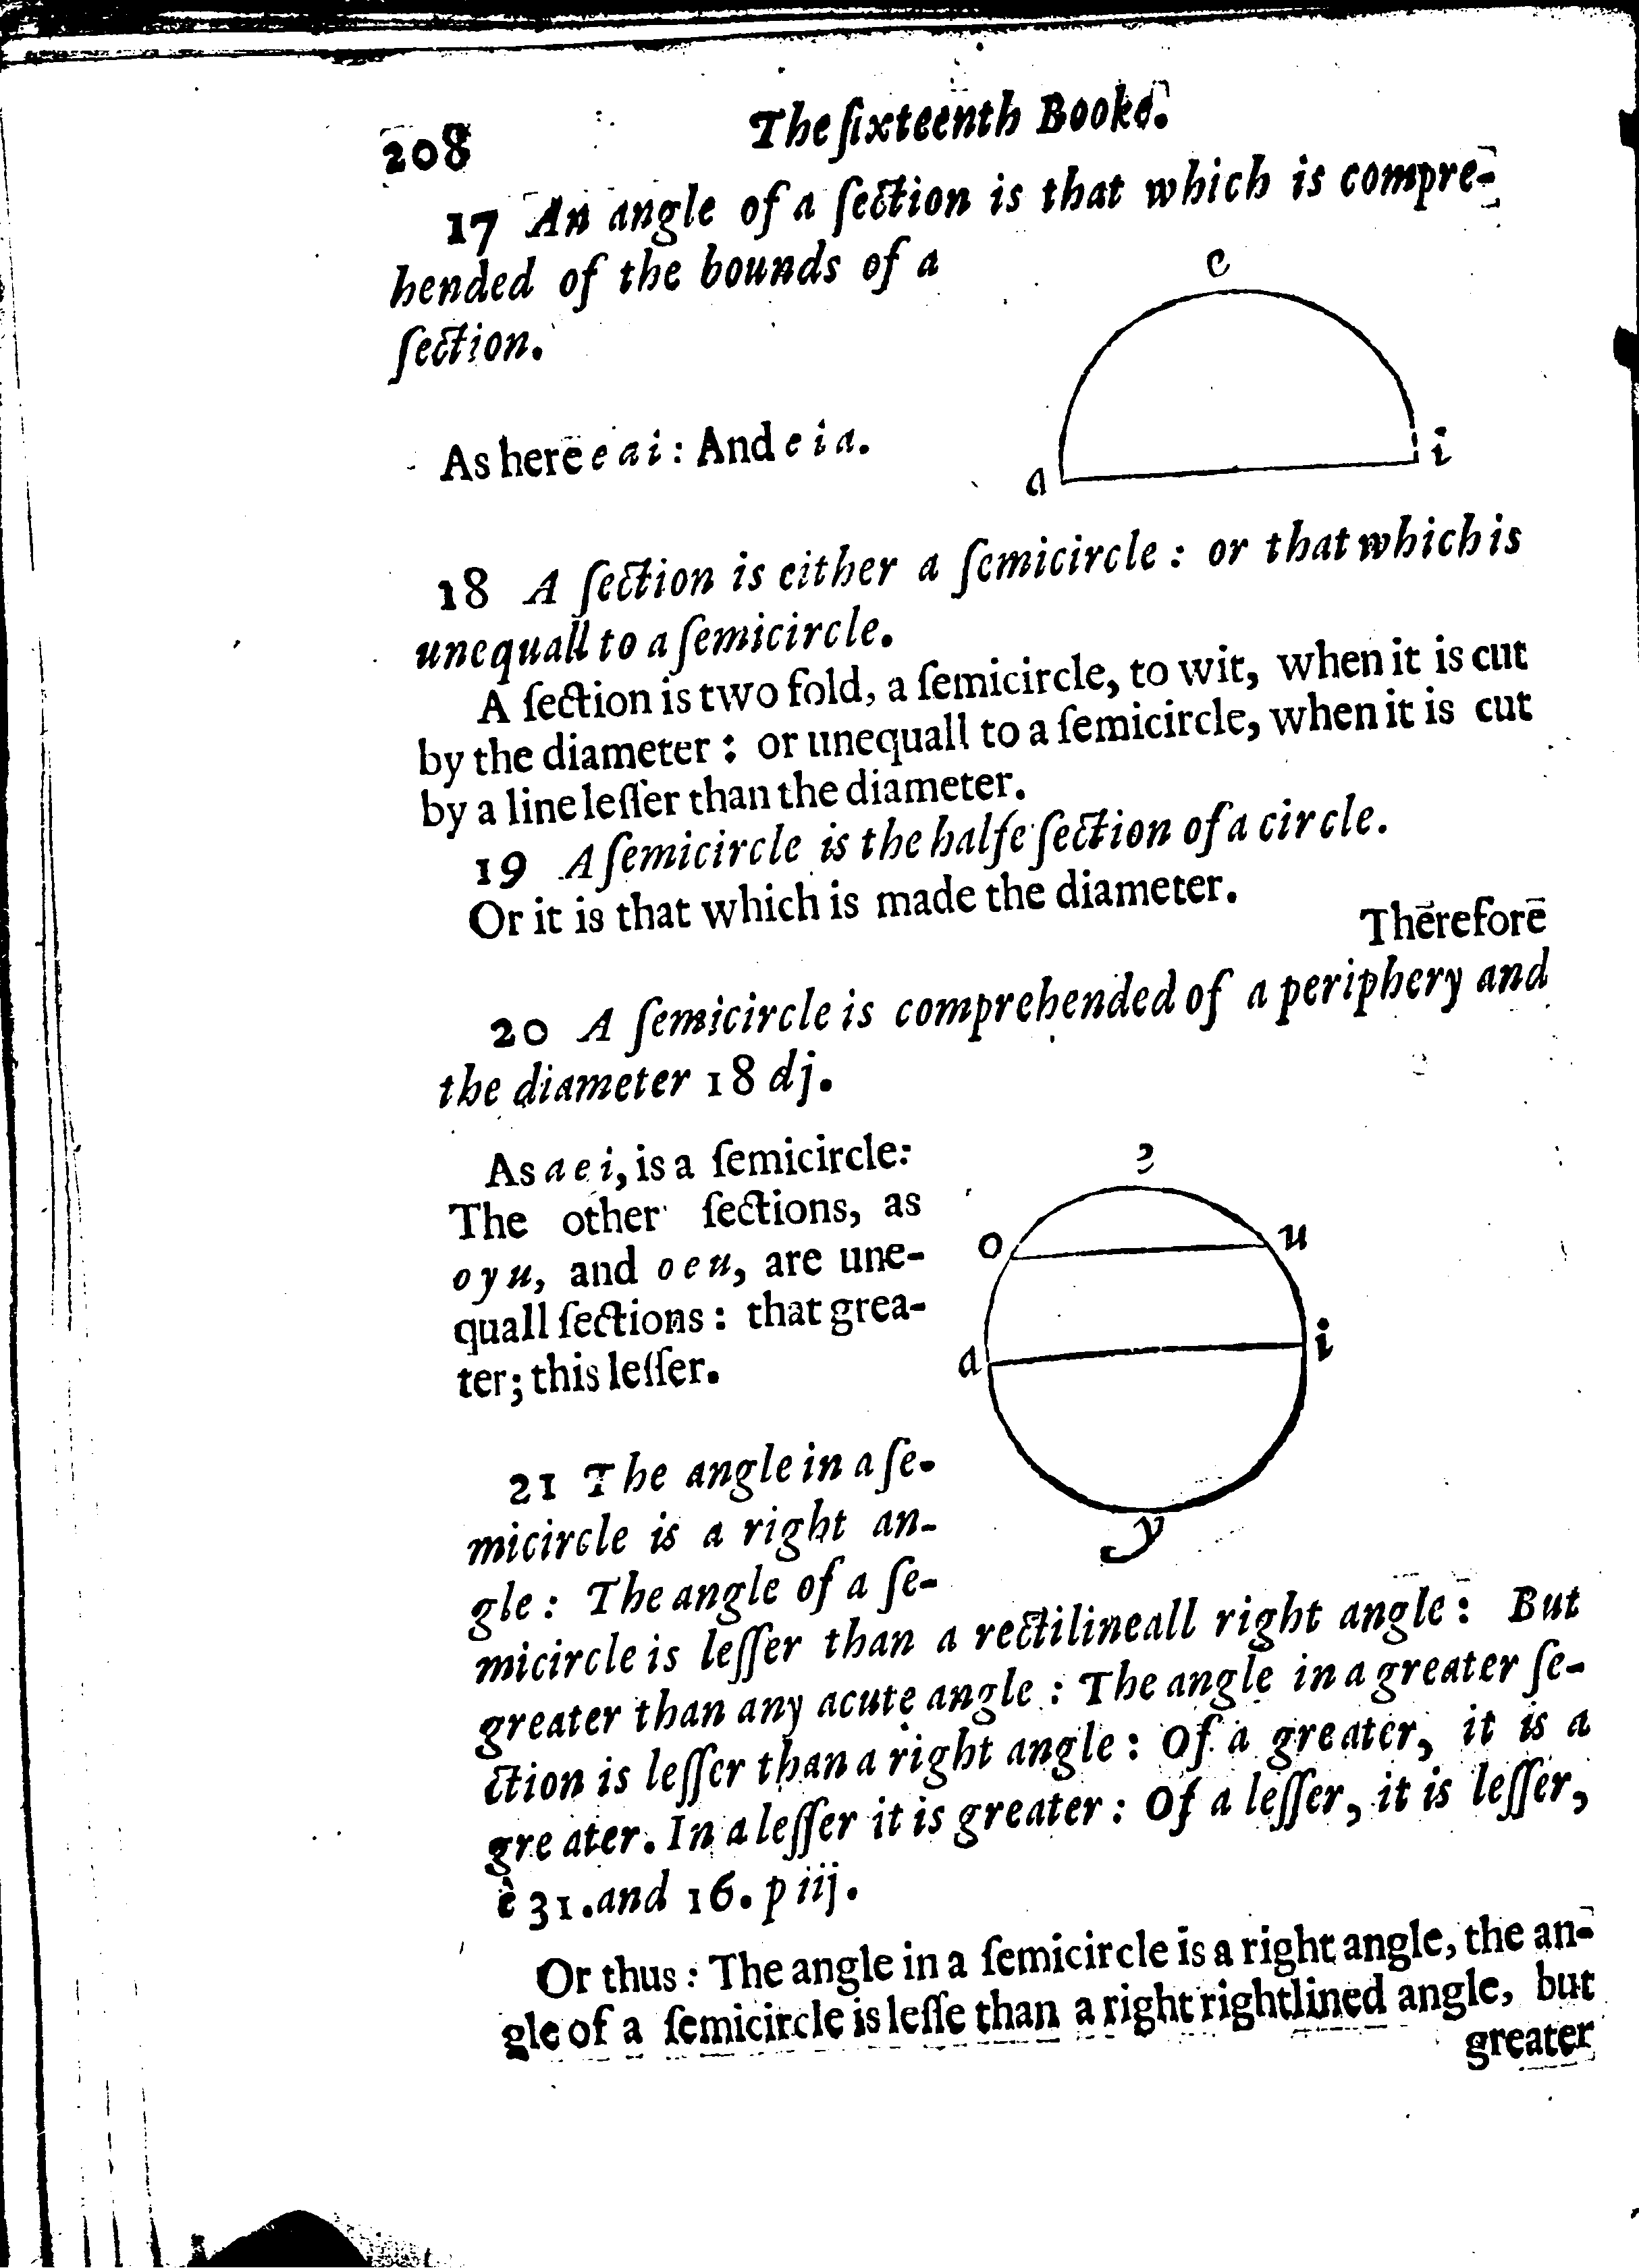 208 The ſixteenth Booke.
17 An angle of a ſection is that which is compre-
hended of the bounds of a
ſection.
e
As here e a i : And e i a.
a i
18 A ſection is either a ſemicircle : or that which is
unequall to a ſemicircle.
A ſection is two fold, a ſemicircle, to wit, when it is cut
by the diameter : or unequall to a ſemicircle, when it is cut
by a line leſſer than the diameter.
19 A ſemicircle is the halfe ſection of a circle.
Or it is that which is made the diameter.
Therefore
20 A ſemicircle is comprehended of a periphery and
the diameter 18 dj.
As a e i, is a ſemicircle:
The other ſections, as
o y u, and o e u, are une-
quall ſections : that grea-
ter; this leſſer.
e
o u
a i
y
21 The angle in a ſe-
micircle is a right an-
gle : The angle of a ſe-
micircle is leſſer than a rectilineall right angle : But
greater than any acute angle : The angle in a greater ſe-
ction is leſſer than a right angle : Of a greater, it is a
greater. In a leſſer it is greater : Of a leſſer, it is leſſer,
è 31. and 16. p iij.
Or thus : The angle in a ſemicircle is a right angle, the an-
gle of a ſemicircle is leſſe than a right rightlined angle, but
greater